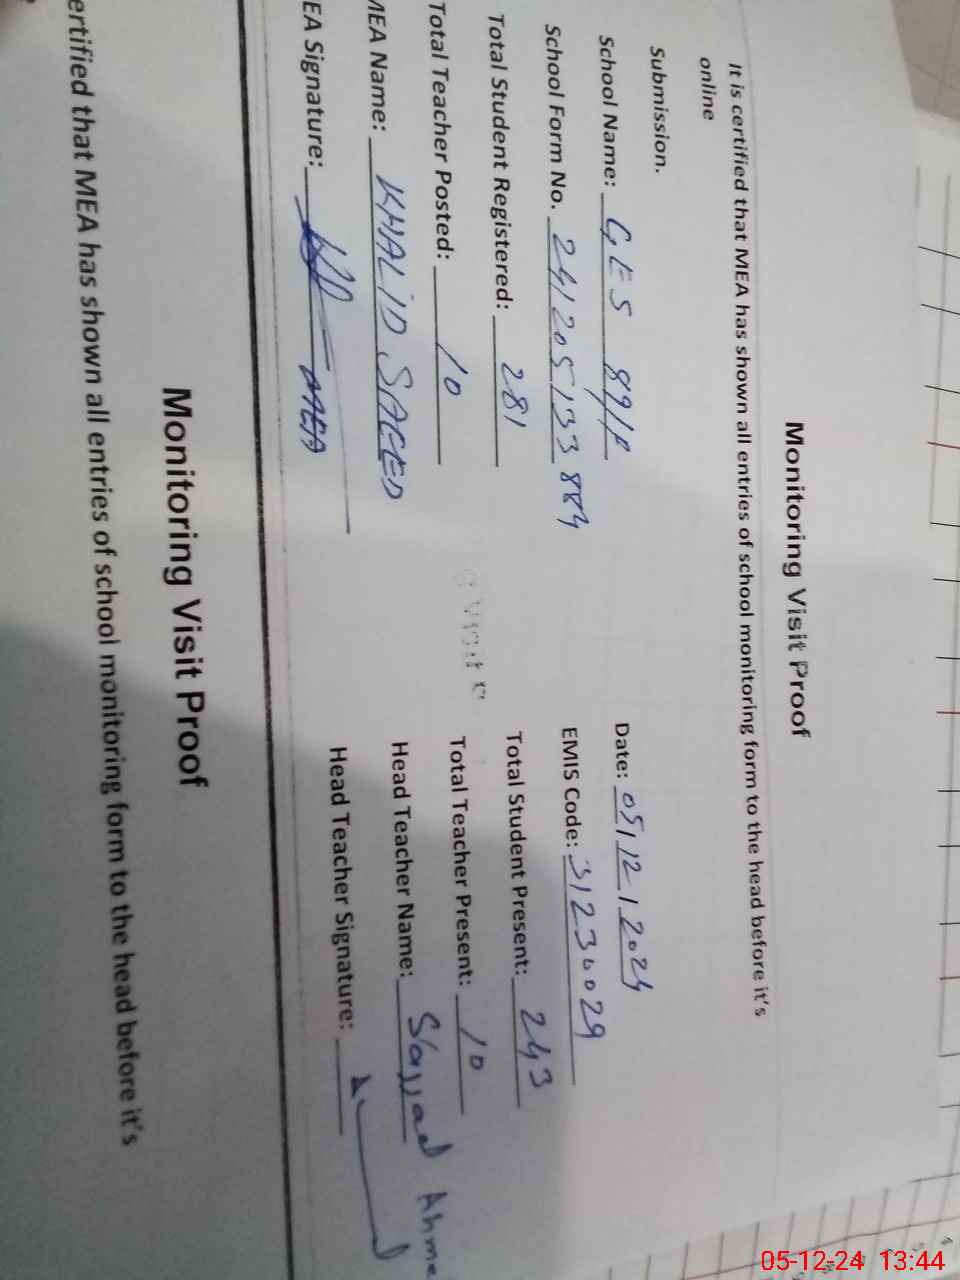 Monitoring Visit Proof
It is certified that MEA has shown all entries of school monitoring form to the head before it's
online
Submission.
School Name: GES 89/P Date: 05/12/2024
School Form No. 241205133884 EMIS Code: 31230029
Total Student Registered: 281 Total Student Present: 243
Total Teacher Posted: 10 Total Teacher Present: 10
MEA Name: KHALID SAEED Head Teacher Name: Sajjad Ahme
EA Signature: MEA Head Teacher Signature:
Monitoring Visit Proof
ertified that MEA has shown all entries of school monitoring form to the head before it's
05-12-24 13:44